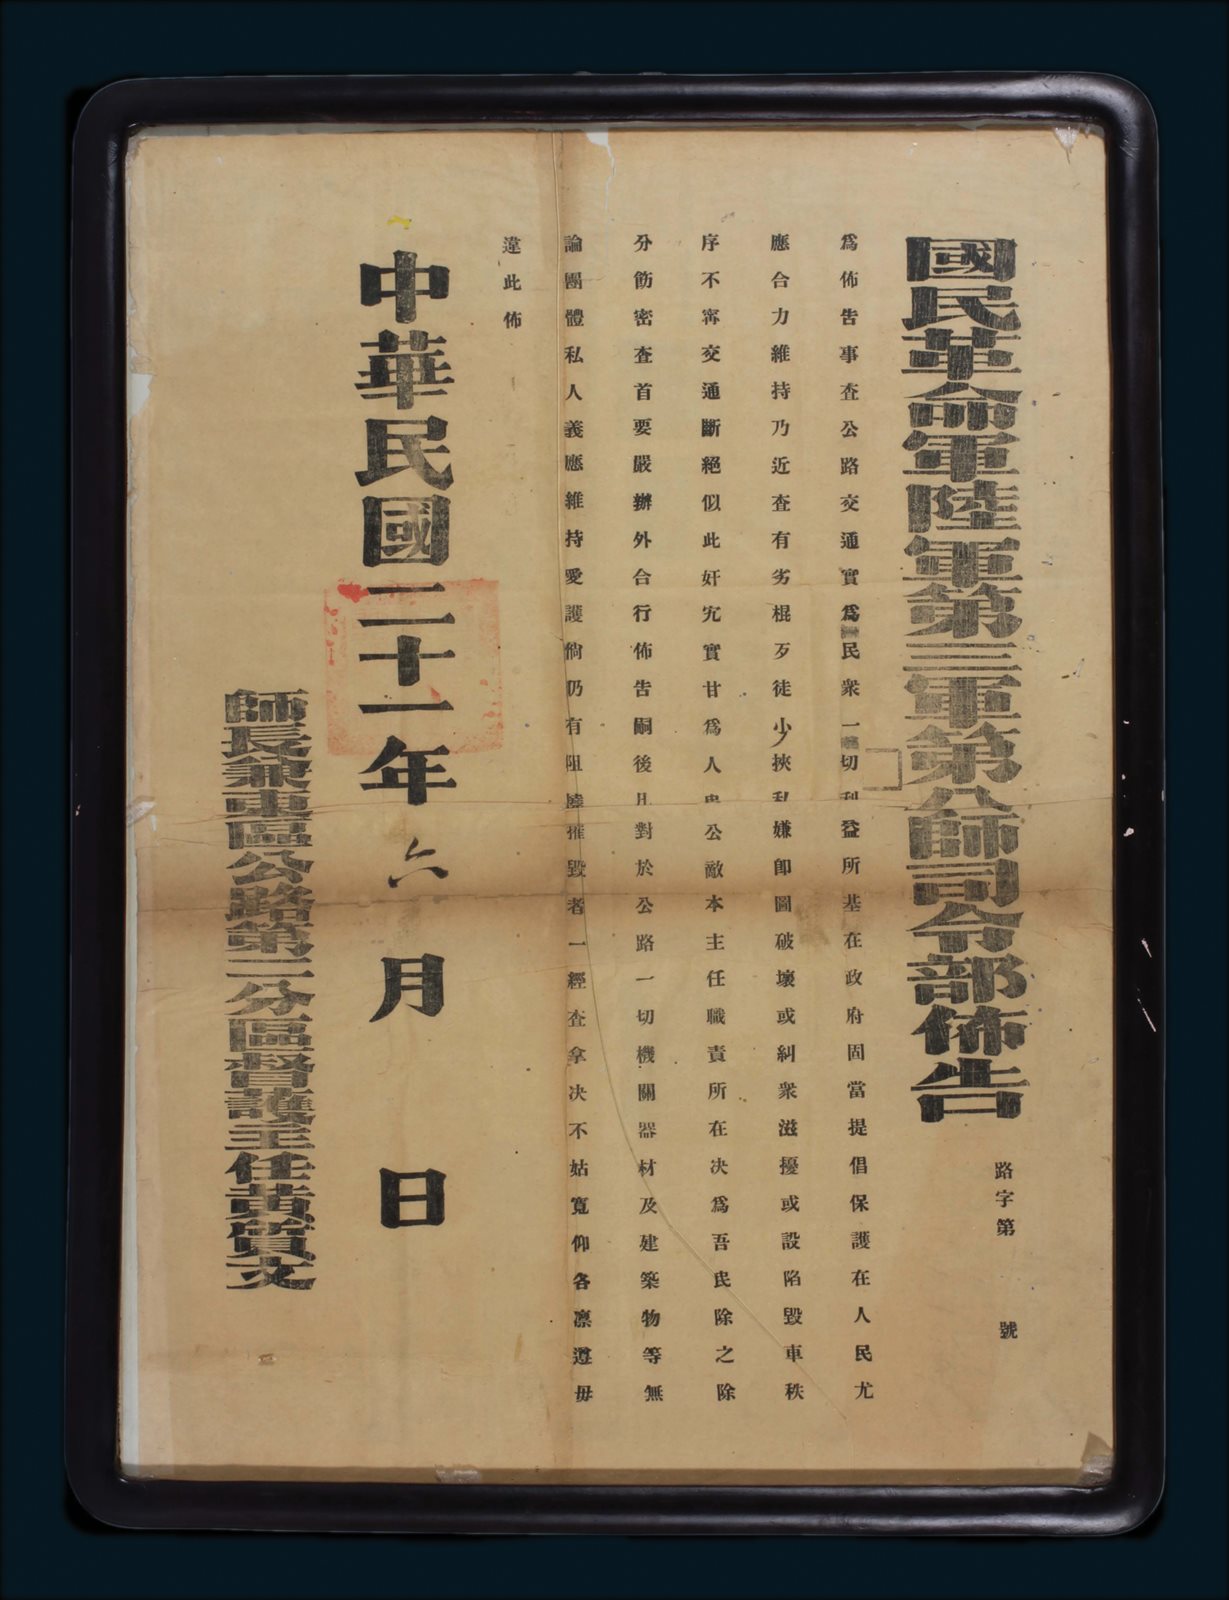 國民革命軍陸軍第三軍第八師司令部佈告
路字第 號
爲佈告事查公路交通實爲民衆一切利益所基在政府固當提倡保護在人民尤
應合力維持乃近查有劣棍歹徒小挾私嫌卽圖破壞或糾衆滋擾或設陷毀車秩
序不甯交通斷絕似此奸宄實甘爲人民公敵本主任職責所在決爲吾民除之除
分飭密查首要嚴辦外合行佈告嗣後凡對於公路一切機關器材及建築物等無
論團體私人義應維持愛護倘仍有阻撓摧毀者一經查拿決不姑寬仰各凛遵毋
違此佈
中華民國二十一年六月 日
師長兼東區公路第二分區督護主任黄質文